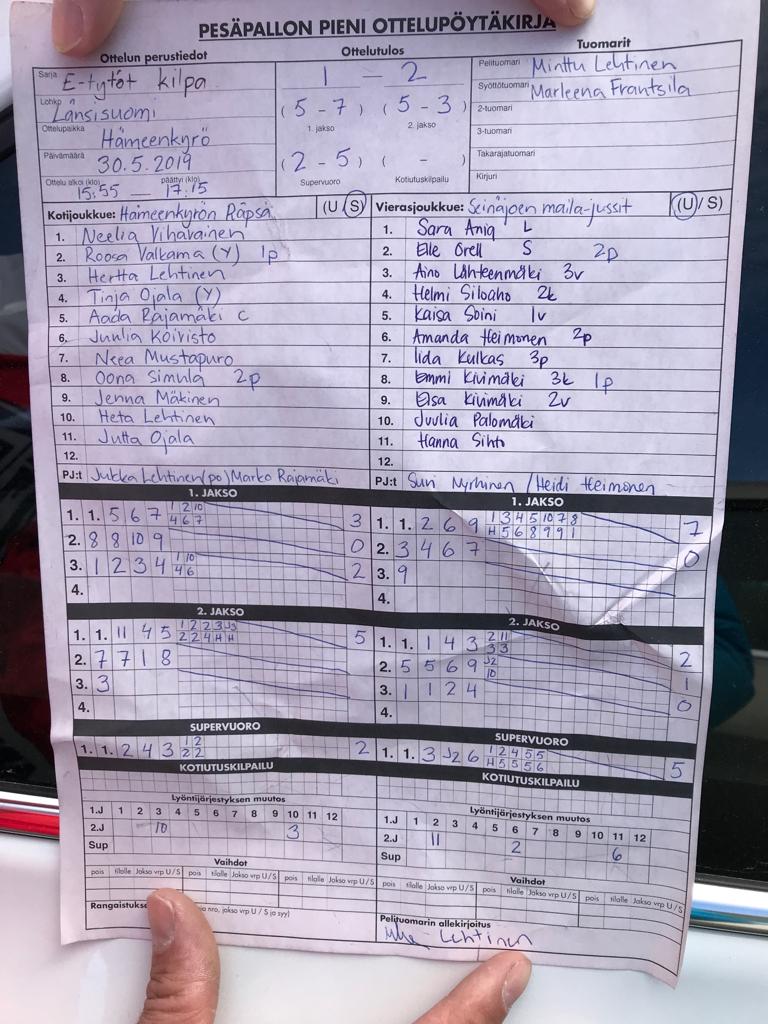 PESÄPALLON PIENI OTTELUPÖYTÄKIRJA
Ottelun perustiedot
Sarja E-tytöt kilpa
Lohko Länsisuomi
Ottelupaikka Hämeenkyrö
Päivämäärä 30.5.2019
Ottelu alkoi (klo) 15:55 — päättyi (klo) 17:15
Ottelutulos
1 - 2
( 5 - 7 ) ( 5 - 3 )
1. jakso 2. jakso
( 2 - 5 ) ( - )
Supervuoro Kotiutuskilpailu
Tuomarit
Pelituomari Minttu Lehtinen
Syöttötuomari Marleena Frantsila
2-tuomari
3-tuomari
Takarajatuomari
Kirjuri
Kotijoukkue: Hämeenkyrön Räpsä (U / S)
1. Neelia Vihavainen
2. Roosa Valkama (Y) 1p
3. Hertta Lehtinen
4. Tinja Ojala (Y)
5. Aada Rajamäki C
6. Juulia Koivisto
7. Neea Mustapuro
8. Oona Simula 2p
9. Jenna Mäkinen
10. Heta Lehtinen
11. Jutta Ojala
12.
PJ:t Jukka Lehtinen (po) Marko Rajamäki
Vierasjoukkue: Seinäjoen maila-jussit (U / S)
1. Sara L
2. Elle Orell S 2p
3. Aino Lähteenmäki 3v
4. Helmi Siloaho 2k
5. Kaisa Soini 1v
6. Amanda Heimonen 2p
7. Iida Kulkas 3p
8. Emmi Kivimäki 3k 1p
9. Elsa Kivimäki 2v
10. Juulia Palomäki
11. Hanna Sihto
12.
PJ:t Suvi Nyrhinen / Heidi Heimonen
1. JAKSO
1. 1. 5 6 7 1 2 10 3
4 6 7
2. 8 8 10 9 0
3. 1 2 3 4 1 10 2
4 6
4.
1. JAKSO
1. 1. 2 6 9 1 3 4 5 10 7 8 7
H 5 6 8 9 9 1
2. 3 4 6 7 0
3. 9
4.
2. JAKSO
1. 1. 11 4 5 1 2 2 3 J3 5
2 2 4 H H
2. 7 7 1 8
3. 3
4.
2. JAKSO
1. 1. 1 4 3 2 11 2
3 3
2. 5 5 6 9 J2 1
10
3. 1 1 2 4 0
4.
SUPERVUORO
1. 1. 2 4 3 1 2 2
2 2
SUPERVUORO
1. 1. 3 J2 6 1 2 4 5 5 5
H 5 5 5 6
KOTIUTUSKILPAILU
KOTIUTUSKILPAILU
Lyöntijärjestyksen muutos
1.J 1 2 3 4 5 6 7 8 9 10 11 12
2.J 10 3
Sup
Lyöntijärjestyksen muutos
1.J 1 2 3 4 5 6 7 8 9 10 11 12
2.J 11 2 6
Sup
Vaihdot
pois tilalle Jakso vrp U/S pois tilalle Jakso vrp U/S pois tilalle Jakso vrp U/S
Vaihdot
pois tilalle Jakso vrp U/S pois tilalle Jakso vrp U/S pois tilalle Jakso vrp U/S
Rangaistuks nro, jakso vrp U / S ja syy)
Pelituomarin allekirjoitus
Lehtinen